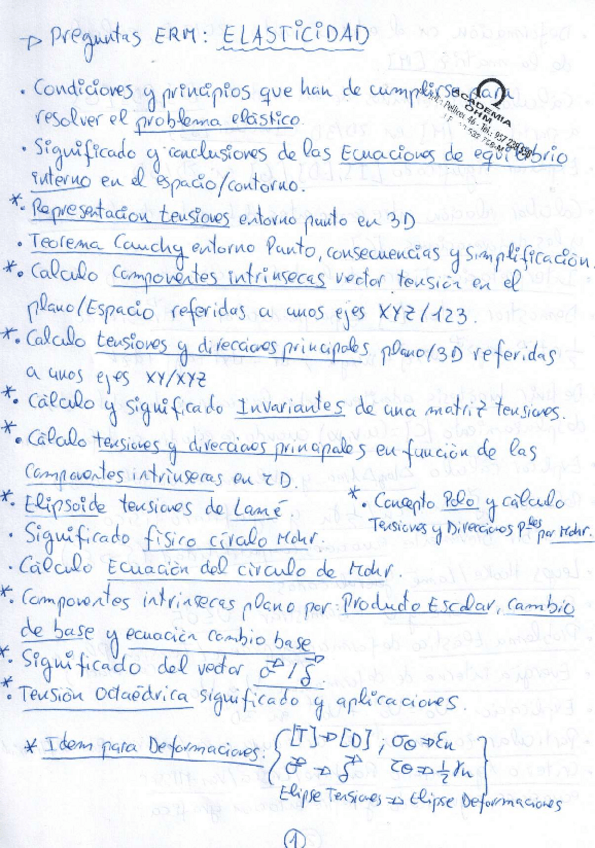 → Preguntas ERM: ELASTICIDAD
· Condiciones y principios que han de cumplirse para
resolver el problema elástico.
ACADEMIA
OHM
· Significado y conclusiones de las Ecuaciones de equilibrio
interno en el espacio/contorno.
*. Representacion tensiones entorno punto en 3D
· Teorema Cauchy entorno Punto, consecuencias y Simplificación.
*. Calculo Componentes intrinsecas vector tension en el
plano/Espacio referidas a unos ejes XYZ/123.
*. Calculo tensiones y direcciones principales plano/3D referidas
a unos ejes XY/XYZ
*. Cálculo y significado Invariantes de una matriz tensiones.
*. Cálculo tensiones y direcciones principales en función de las
Componentes intrinsecas en 2D.
*. Elipsoide tensiones de Lamé
* Concepto Polo y cálculo
Tensiones y Direcciones Ples por Mohr.
· Significado físico círculo Mohr.
· Cálculo Ecuación del circulo de Mohr.
*. Componentes intrinsecas plano por: Producto Escalar, cambio
de base y ecuación cambio base
*. Significado del vector σ⃗ / δ⃗
*. Tensión Octaédrica significado y aplicaciones.
* Idem para Deformaciones: { [T] → [D] ; σθ → εn
σ⃗ → δ⃗ τθ → ½ γn }
Elipse Tensiones → Elipse Deformaciones
1